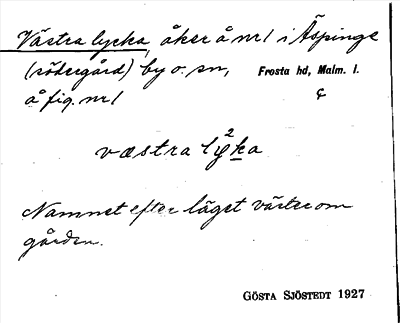 Västra lycka, åker å nr 1 i Äspinge
(södergård) by o. sn, Frosta hd, Malm. l.
å fig. nr 1
væstra ly²ka
Namnet efter läget väster om
gården.
GÖSTA SJÖSTEDT 1927